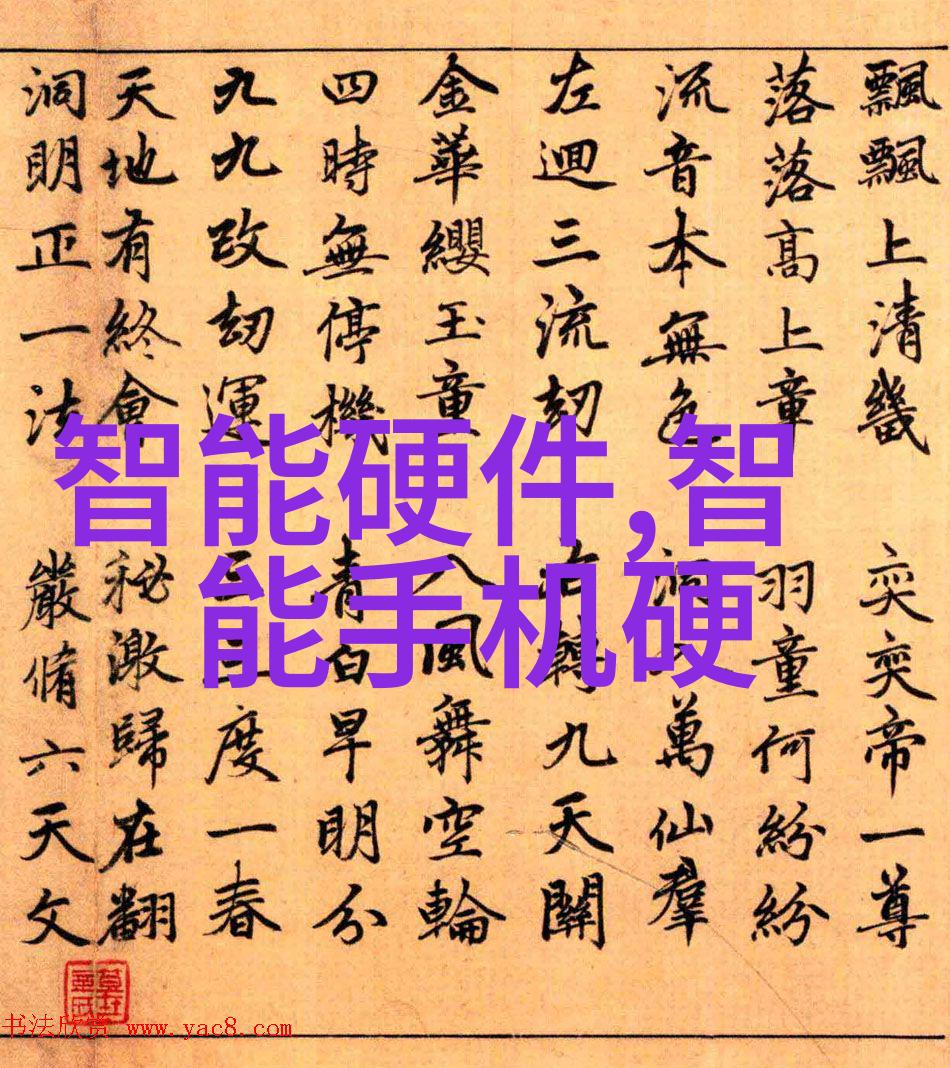 飄飄上清畿 奕奕帝一尊
落落高上童 羽童何紛紛
流音本無色 萬仙羣
左迴三流刧 右轉九天關
金華纓玉童 八風舞空輪
四時無停機 青白早明分
九九改刧運 三三度一春
天地有終會 秘激歸在翻
洞明正一法 嚴脩六天文
智能硬件,智
能手机硬
书法欣赏 www.yac8.com